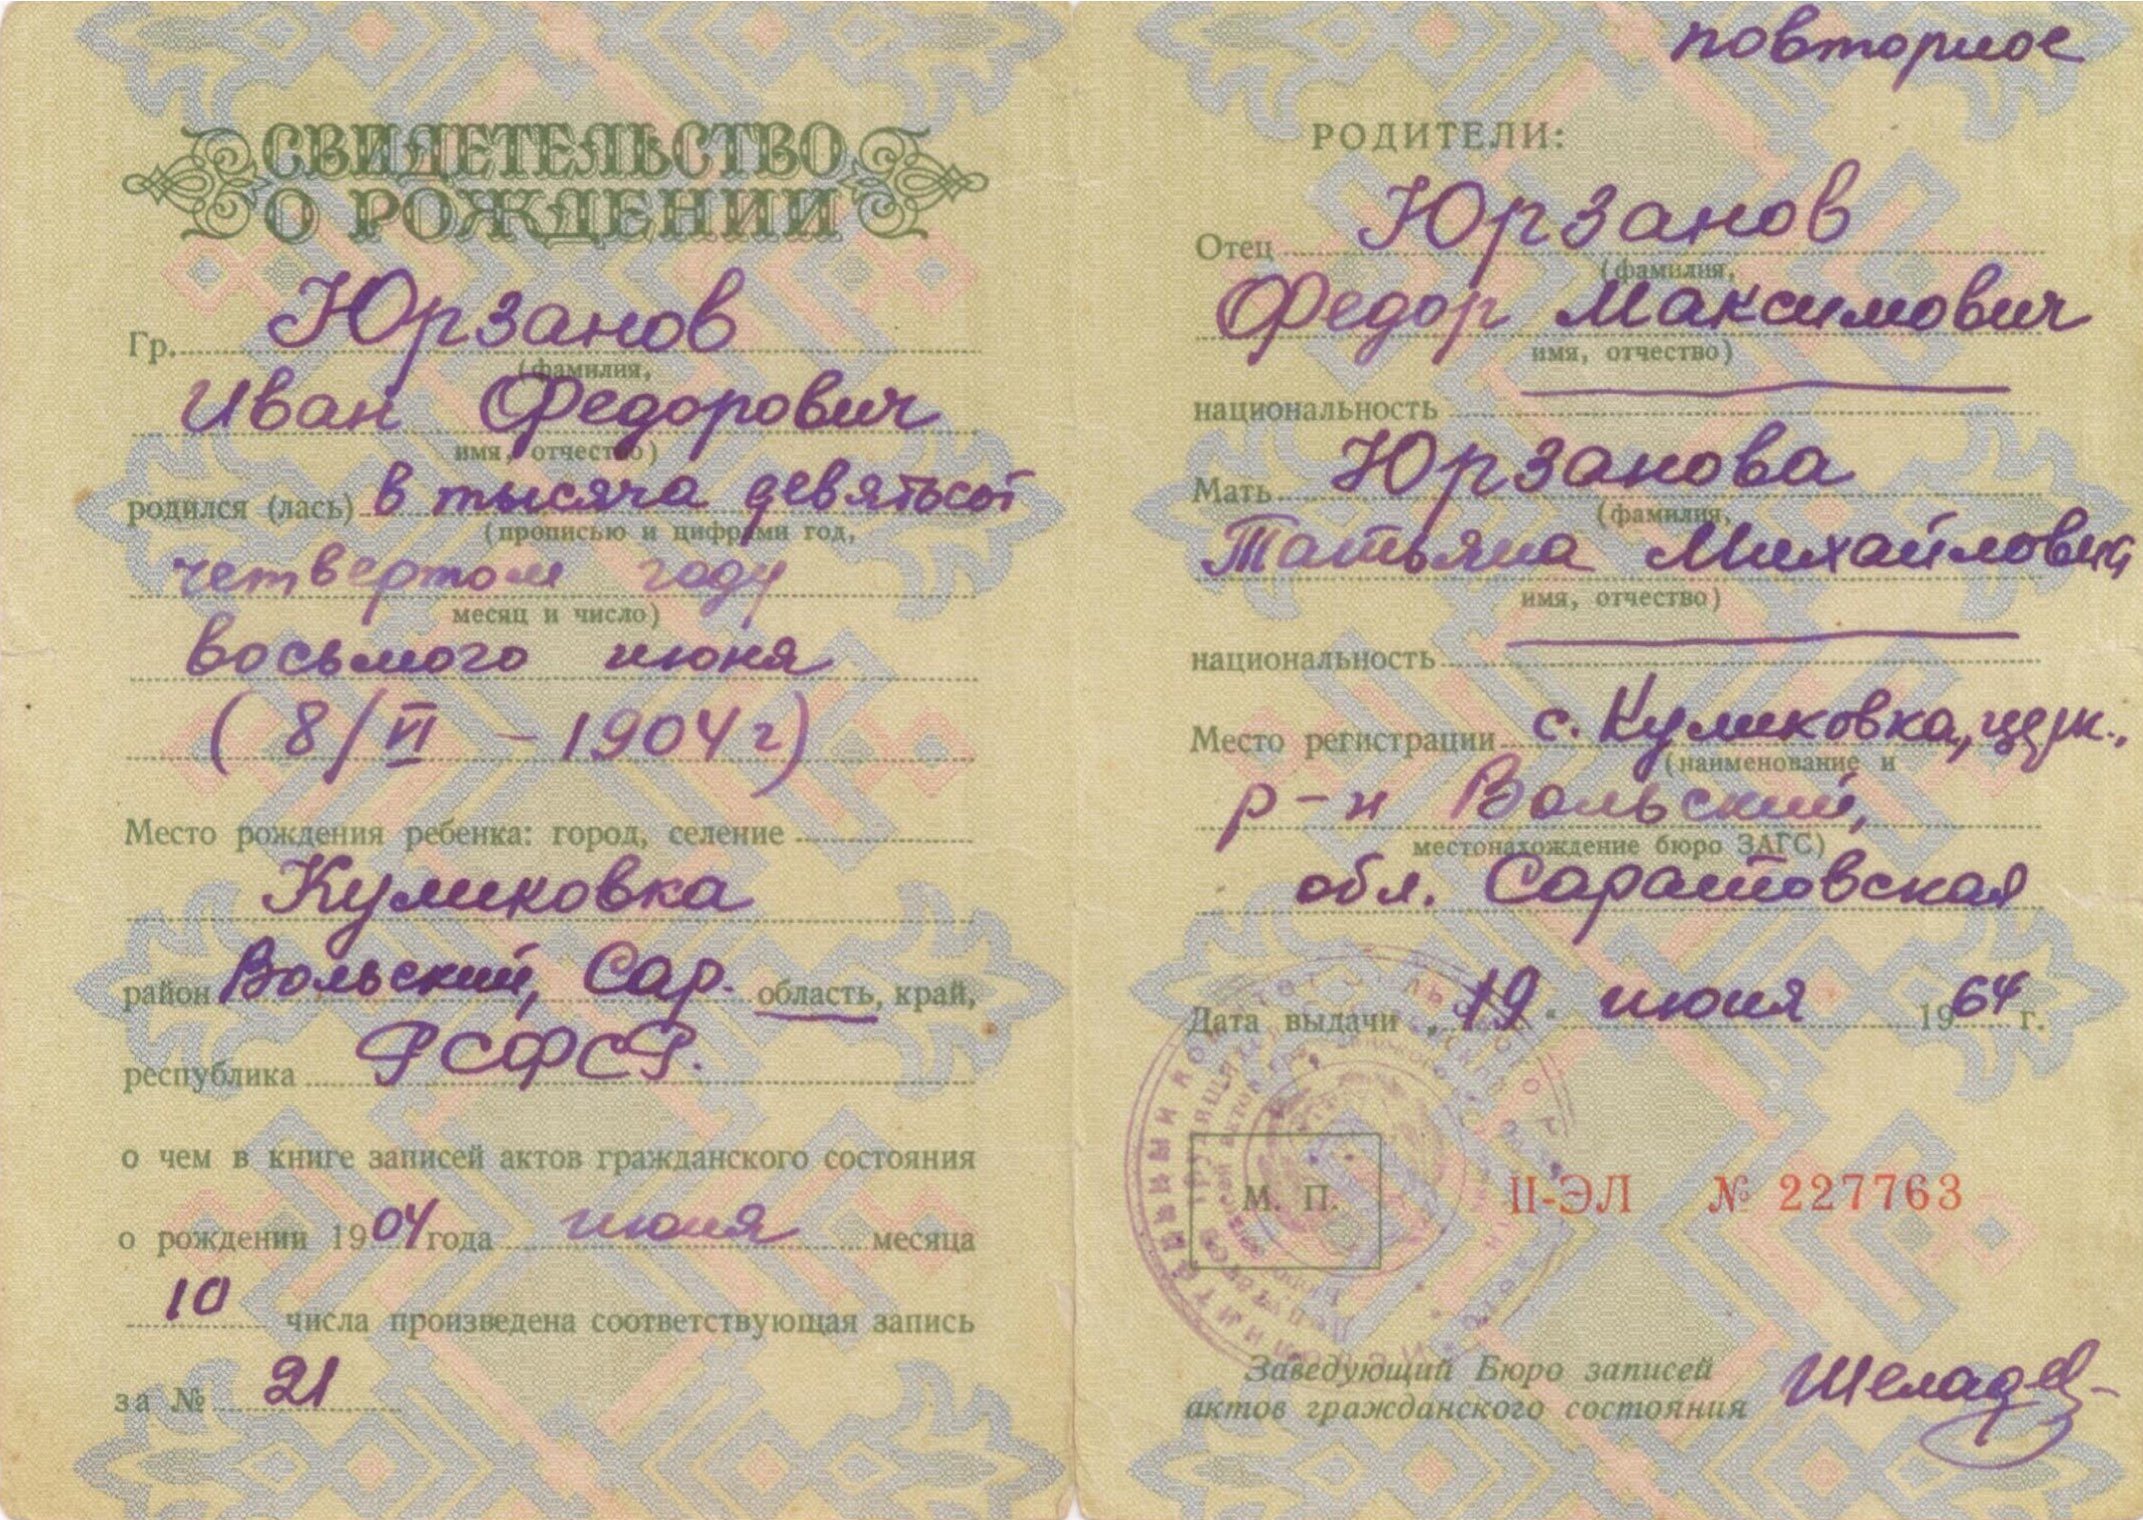 СВИДЕТЕЛЬСТВО
О РОЖДЕНИИ
Гр. Юрзанов
(фамилия,
Иван Федорович
имя, отчество)
родился (лась) в тысяча девятьсот
(прописью и цифрами год,
четвертом году
месяц и число)
восьмого июня
(8/VI – 1904 г)
Место рождения ребенка: город, селение
Куликовка
район Вольский, Сар. область, край,
республика РСФСР.
о чем в книге записей актов гражданского состояния
о рождении 1904 года июня месяца
10 числа произведена соответствующая запись
за № 21
повторное
РОДИТЕЛИ:
Отец Юрзанов
(фамилия,
Федор Максимович
имя, отчество)
национальность
Мать Юрзанова
(фамилия,
Татьяна Михайловна
имя, отчество)
национальность
Место регистрации с. Куликовка, церк.,
(наименование и
р-н Вольский,
местонахождение бюро ЗАГС)
обл. Саратовская
Дата выдачи „19" июня 1964 г.
М. П.
II-ЭЛ № 227763
Заведующий Бюро записей
актов гражданского состояния